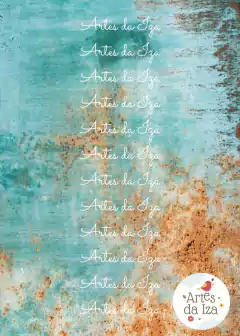 Artes da Iza
Artes da Iza
Artes da Iza
Artes da Iza
Artes da Iza
Artes da Iza
Artes da Iza
Artes da Iza
Artes da Iza
Artes da Iza
Artes da Iza
Artes da Iza
Artes
da Iza